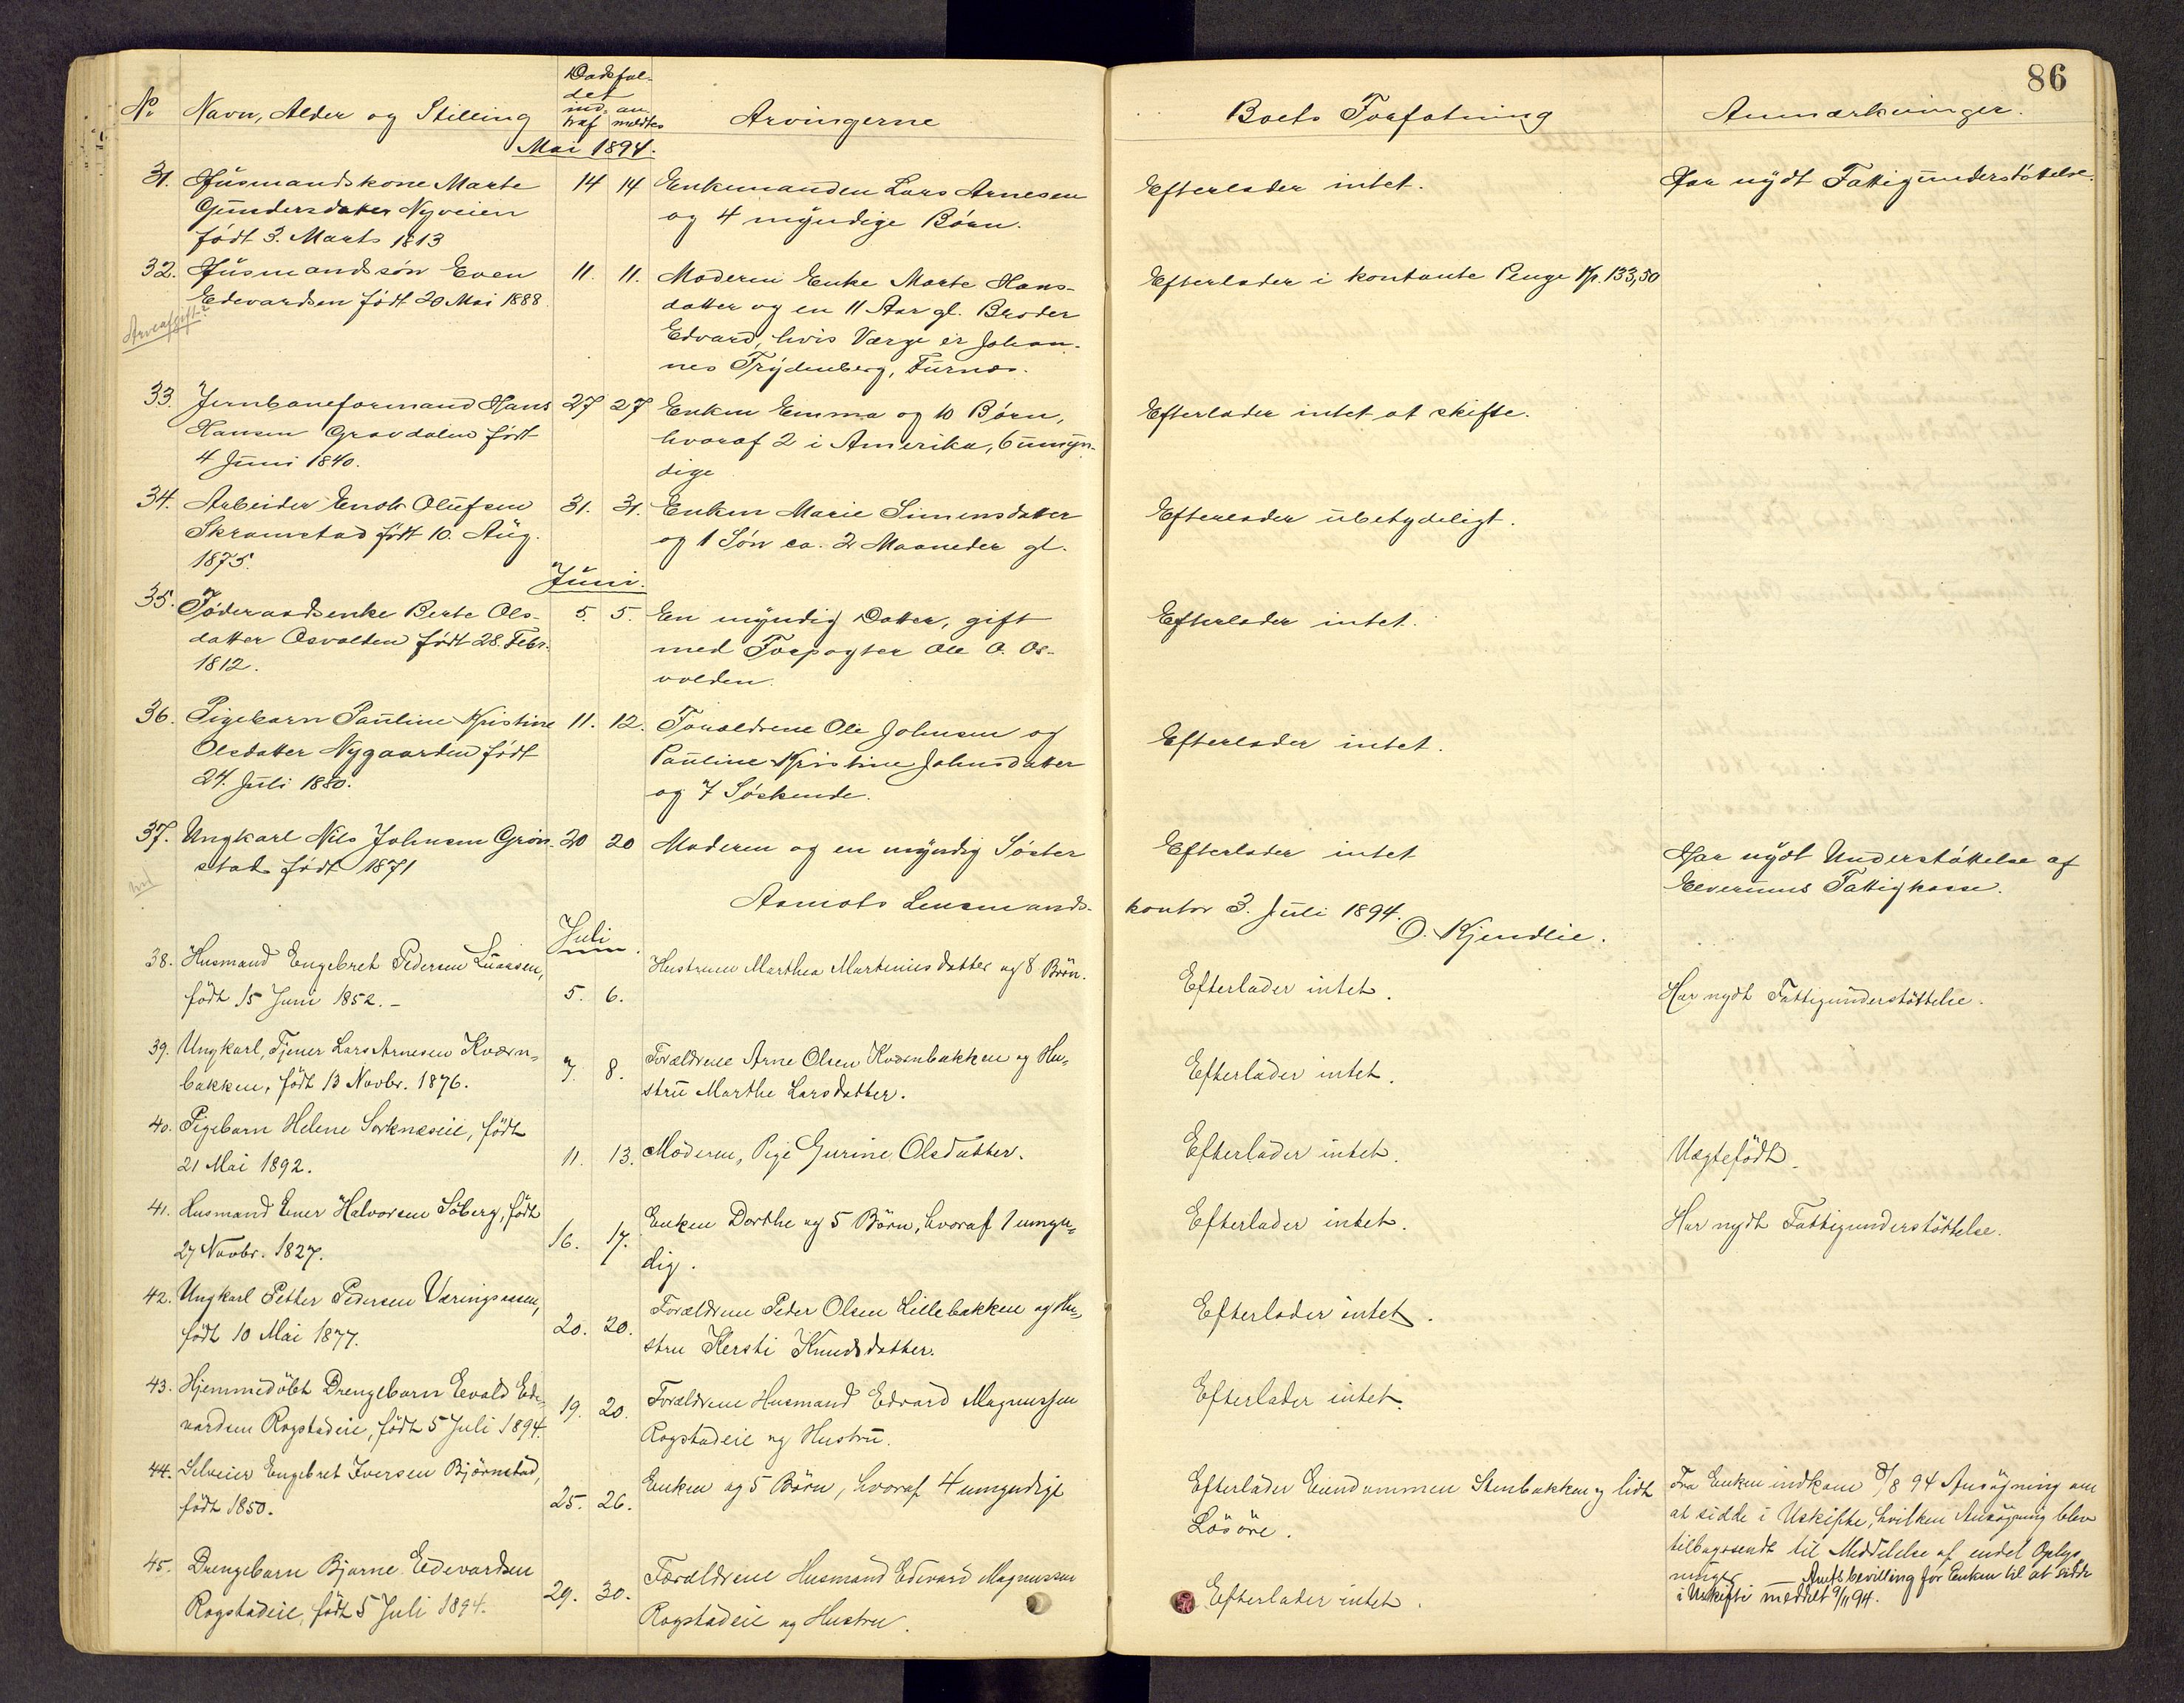 86
No Navn, Alder og Stilling
Dødsfal-
det
ind- an-
traf meldtes
Arvingerne
Boets Forfatning
Anmærkninger.
Mai 1894.
31. Husmandskone Marte 14 14 Enkemanden Lars Arnesen Efterlader intet. Har nydt Fattigunderstøttelse.
Gundersdatter Nyveien og 4 myndige Børn.
født 3. Marts 1813
32. Husmandssøn Even 11. 11. Moderen Enke Marte Hans- Efterlader i kontante Penge Kr. 133,50
Edevardsen født 20 Mai 1888 datter og en 11 Aar gl. Broder
Arveafgift? Edvard, hvis Værge er Johan-
nes Frydenberg, Furnæs.
33. Jernbaneformand Hans 27 27 Enken Emma og 10 Børn, Efterlader intet at skifte.
Hansen Gravdalen født hvoraf 2 i Amerika, 6 umyn-
4 Juni 1840. dige
34. Arbeider Enok Olufsen 31. 31. Enken Marie Simensdatter Efterlader ubetydeligt.
Skramstad født 10. Aug. og 1 Søn ca. 2 Maaneder gl.
1875.
Juni.
35. Føderaadsenke Berte Ols- 5. 5. En myndig Datter, gift Efterlader intet.
datter Osvolden født 28. Febr. med Forpagter Ole O. Os-
1812. volden.
36. Pigebarn Pauline Kristine 11. 12. Forældrene Ole Johnsen og Efterlader intet.
Olsdatter Nygaarden født Pauline Kristine Johnsdatter
24. Juli 1880. og 7 Søskende.
37. Ungkarl Nils Johnsen Grøn- 20 20 Moderen og en myndig Søster Efterlader intet Har nydt Understøttelse af
stad født 1871 Elverums Fattigkasse.
Aamots Lensmands- kontor 3. Juli 1894.
O. Kjendlie.
Juli
38. Husmand Engebret Pedersen Luaasen, Hustruen Marthea Martinusdatter og 8 Børn.
født 15 Juni 1852. – 5. 6. Efterlader intet. Har nydt Fattigunderstøttelse.
39. Ungkarl, Tjener Lars Arnesen Kværn- 7. 8. Forældrene Arne Olsen Kværnbakken og Hu- Efterlader intet.
bakken, født 13 Novbr. 1876. stru Marthe Larsdatter.
40. Pigebarn Helene Sorknæseie, født
21 Mai 1892. 11. 13. Moderen, Pige Gurine Olsdatter. Efterlader intet. Uægtefødt.
41. Husmand Ener Halvorsen Søberg, født Enken Dorthe og 5 Børn, hvoraf 1 umyn- Efterlader intet. Har nydt Fattigunderstøttelse.
27 Novbr. 1827. 16. 17. dig.
42. Ungkarl Petter Pedersen Væringsaasen, Forældrene Peder Olsen Lillebakken og Hu- Efterlader intet.
født 10 Mai 1877. 20. 20. stru Kersti Knudsdatter.
43. Hjemmedøbt Drengebarn Evald Ede- 19. 20. Forældrene Husmand Edvard Magnussen Efterlader intet.
vardsen Rogstadeie, født 5 Juli 1894. Rogstadeie og Hustru.
44. Selveier Engebret Iversen Bjørnstad, Enken og 5 Børn, hvoraf 4 umyndige Efterlader Eiendommen Stenbakken og lidt Fra Enken indkom 8/8 94 Ansøgning om
født 1850. 25. 26. Løsøre. at sidde i Uskifte, hvilken Ansøgning blev
tilbagesendt til Meddelelse af endel Oplys-
ninger – Amtsbevilling for Enken til at sidde
i Uskifte meddelt 9/11 94.
45. Drengebarn Bjarne Edevardsen 29. 30. Forældrene Husmand Edevard Magnussen Efterlader intet.
Rogstadeie, født 5 Juli 1894. Rogstadeie og Hustru.